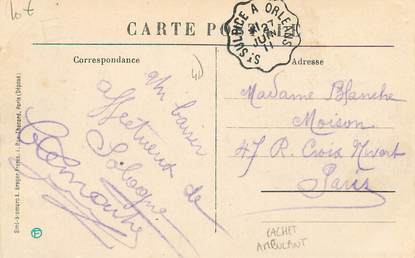 Lot
CARTE POSTALE
ST SULPICE A ORLEANS
27
JUIN
11
Correspondance
Adresse
4)
Un baiser
affectueux de
Sologne
Madame Blanche
Moison
47 R. Croix Nivert
Paris
CACHET
AMBULANT